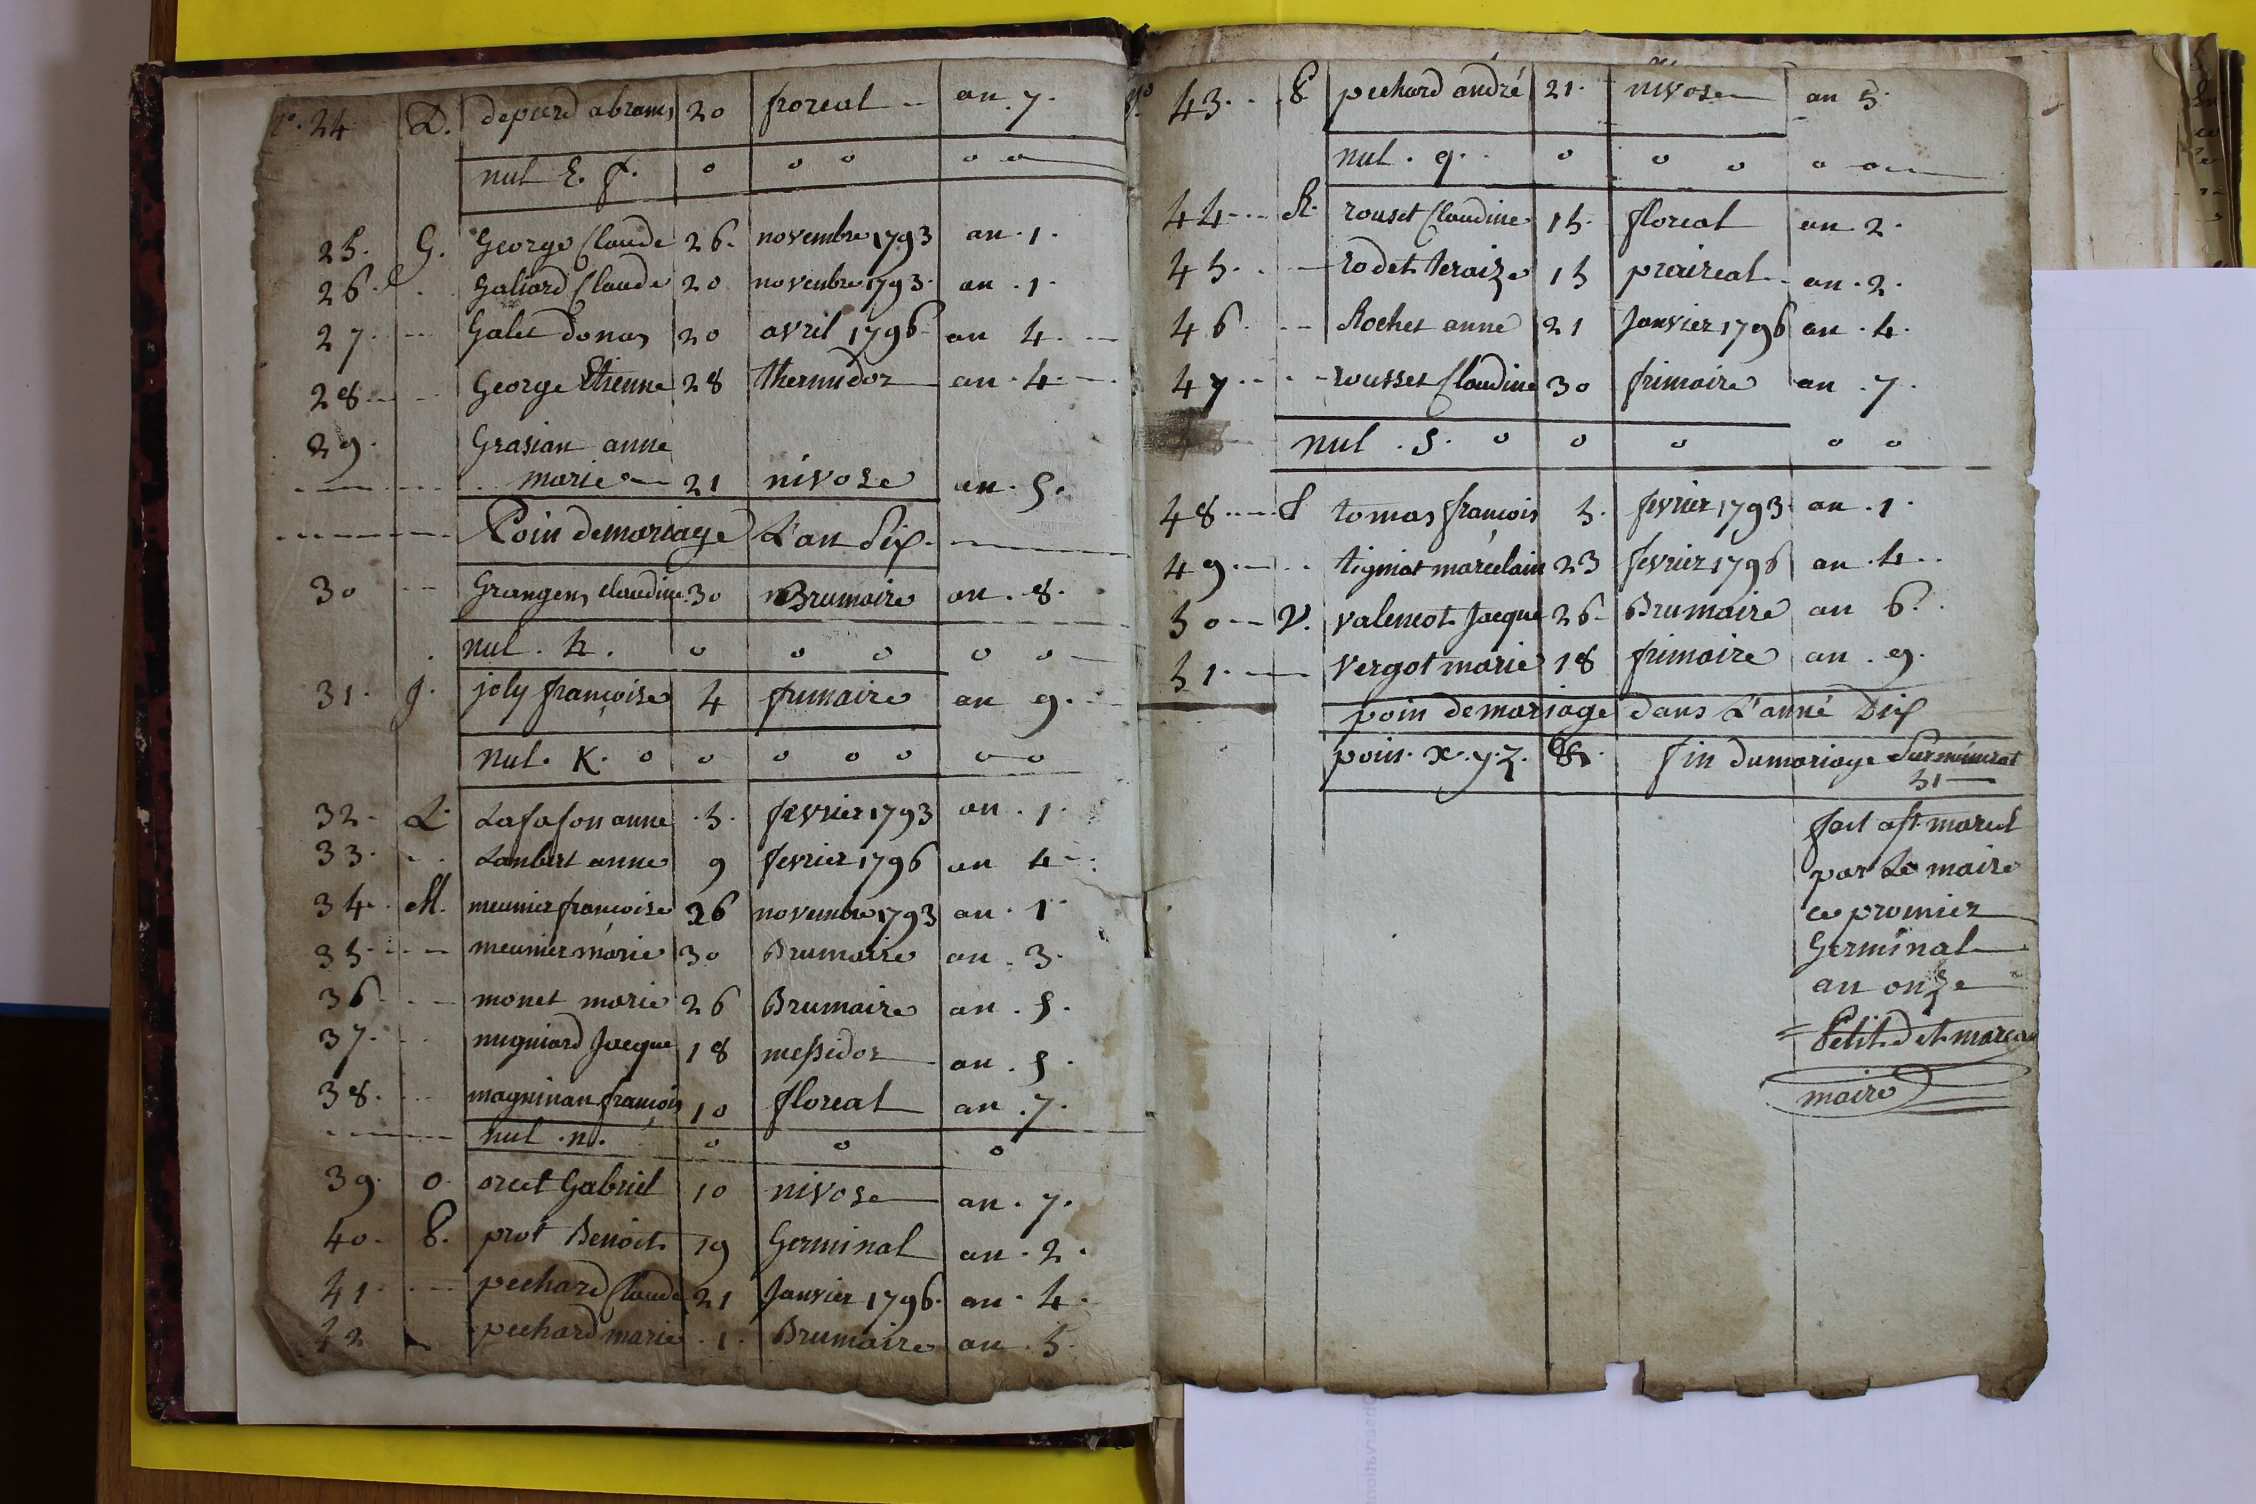 n° 24 D. depierd abrams 20 froreal an. 7.
nul E. f. o o o o o
25. G. George Claude 26. novembre 1793 an. 1.
26. Galiard Claude 20 novenbre 1793. an. 1.
27. Galet donas 20 avril 1796 an 4.
28 George Etienne 28 thermidor an. 4.
29. Grasian anne
marie 21 nivose an. 5.
Poin de mariage L'an Six.
30 Grangens claudine 30 Brumaire an. 8.
nul. h. o o o o o
31. J. joly françoise 4 frimaire an 9.
Nul. K. o o o o o o o
32. L. Lafafon anne .5. fevrier 1793 an. 1.
33. Lanbert anne 9 fevrier 1796 an 4
34. M. meunier francoise 26 novembre 1793 an. 1.
35. meunier marie 30 Brumaire an. 3.
36 monet marie 26 Brumaire an. 5.
37. mugniard Jacque 18 messidor an. 5.
38. magninan françois 10 floreal an. 7.
nul. n. o o o
39. O. orcet Gabriel 10 nivose an. 7.
40. P. prot Benoit 19 Germinal an. 2.
41. pechard Claude 21 Janvier 1796. an. 4.
42 pechard marie .1. Brumaire an. 5.
n° 43. P pechard andré 21. nivose an 5.
nul. q. o o o o o
44 R. rouset Claudine 15. floreal an. 2.
45. rodet teraize 15 praireal an. 2.
46. Rochet anne 21 Janvier 1796 an. 4.
47 rousset Claudine 30 frimaire an. 7.
nul. S. o o o o o
48 t tomas françois 5. fevrier 1793. an. 1.
49. tigniot marcelain 23 fevrier 1796 an. 4
50 V. valencot Jacque 26 Brumaire an 6.
51. vergot marie 18 frimaire an. 9.
poin de mariage dans L'anné Dix
poin. x. y. z. &. fin du mariage Sur
51
fait a st marcel
par Le maire
ce promier
Germinal
an onze
= Petit
maire